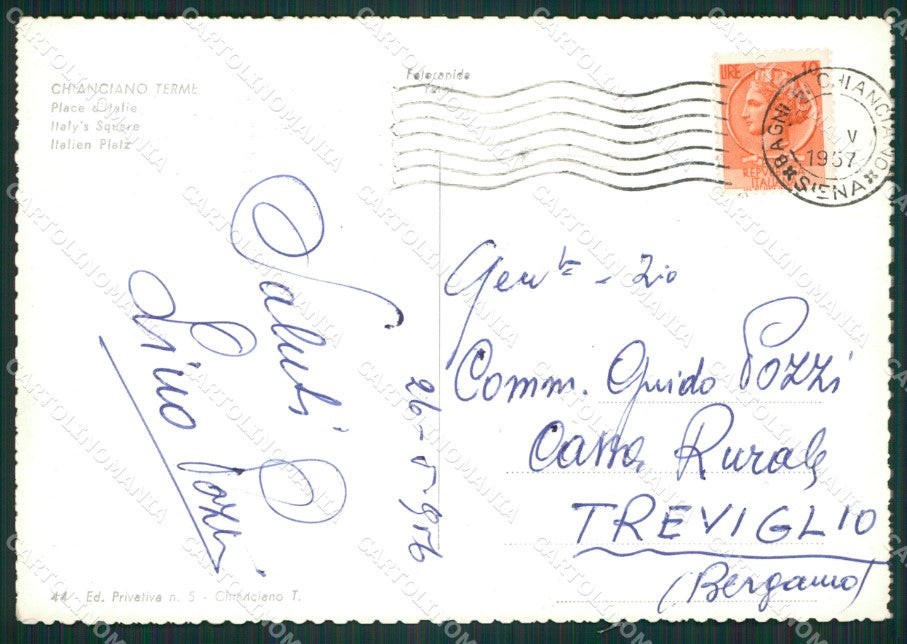 CHIANCIANO TERME
Place d'Italie
Italy's Square
Italien Platz
Saluti
Lino Pozzi
26-5-956
44 - Ed. Privativa n. 5 - Chianciano T.
LIRE 10
ITALIA
REPVB
ITALIA
BAGNI DI CHIANCIANO
V
1957
*SIENA*
Gent.- Zio
Comm. Guido Pozzi
Cassa Rurale
TREVIGLIO
(Bergamo)
CARTOLINOMANIA